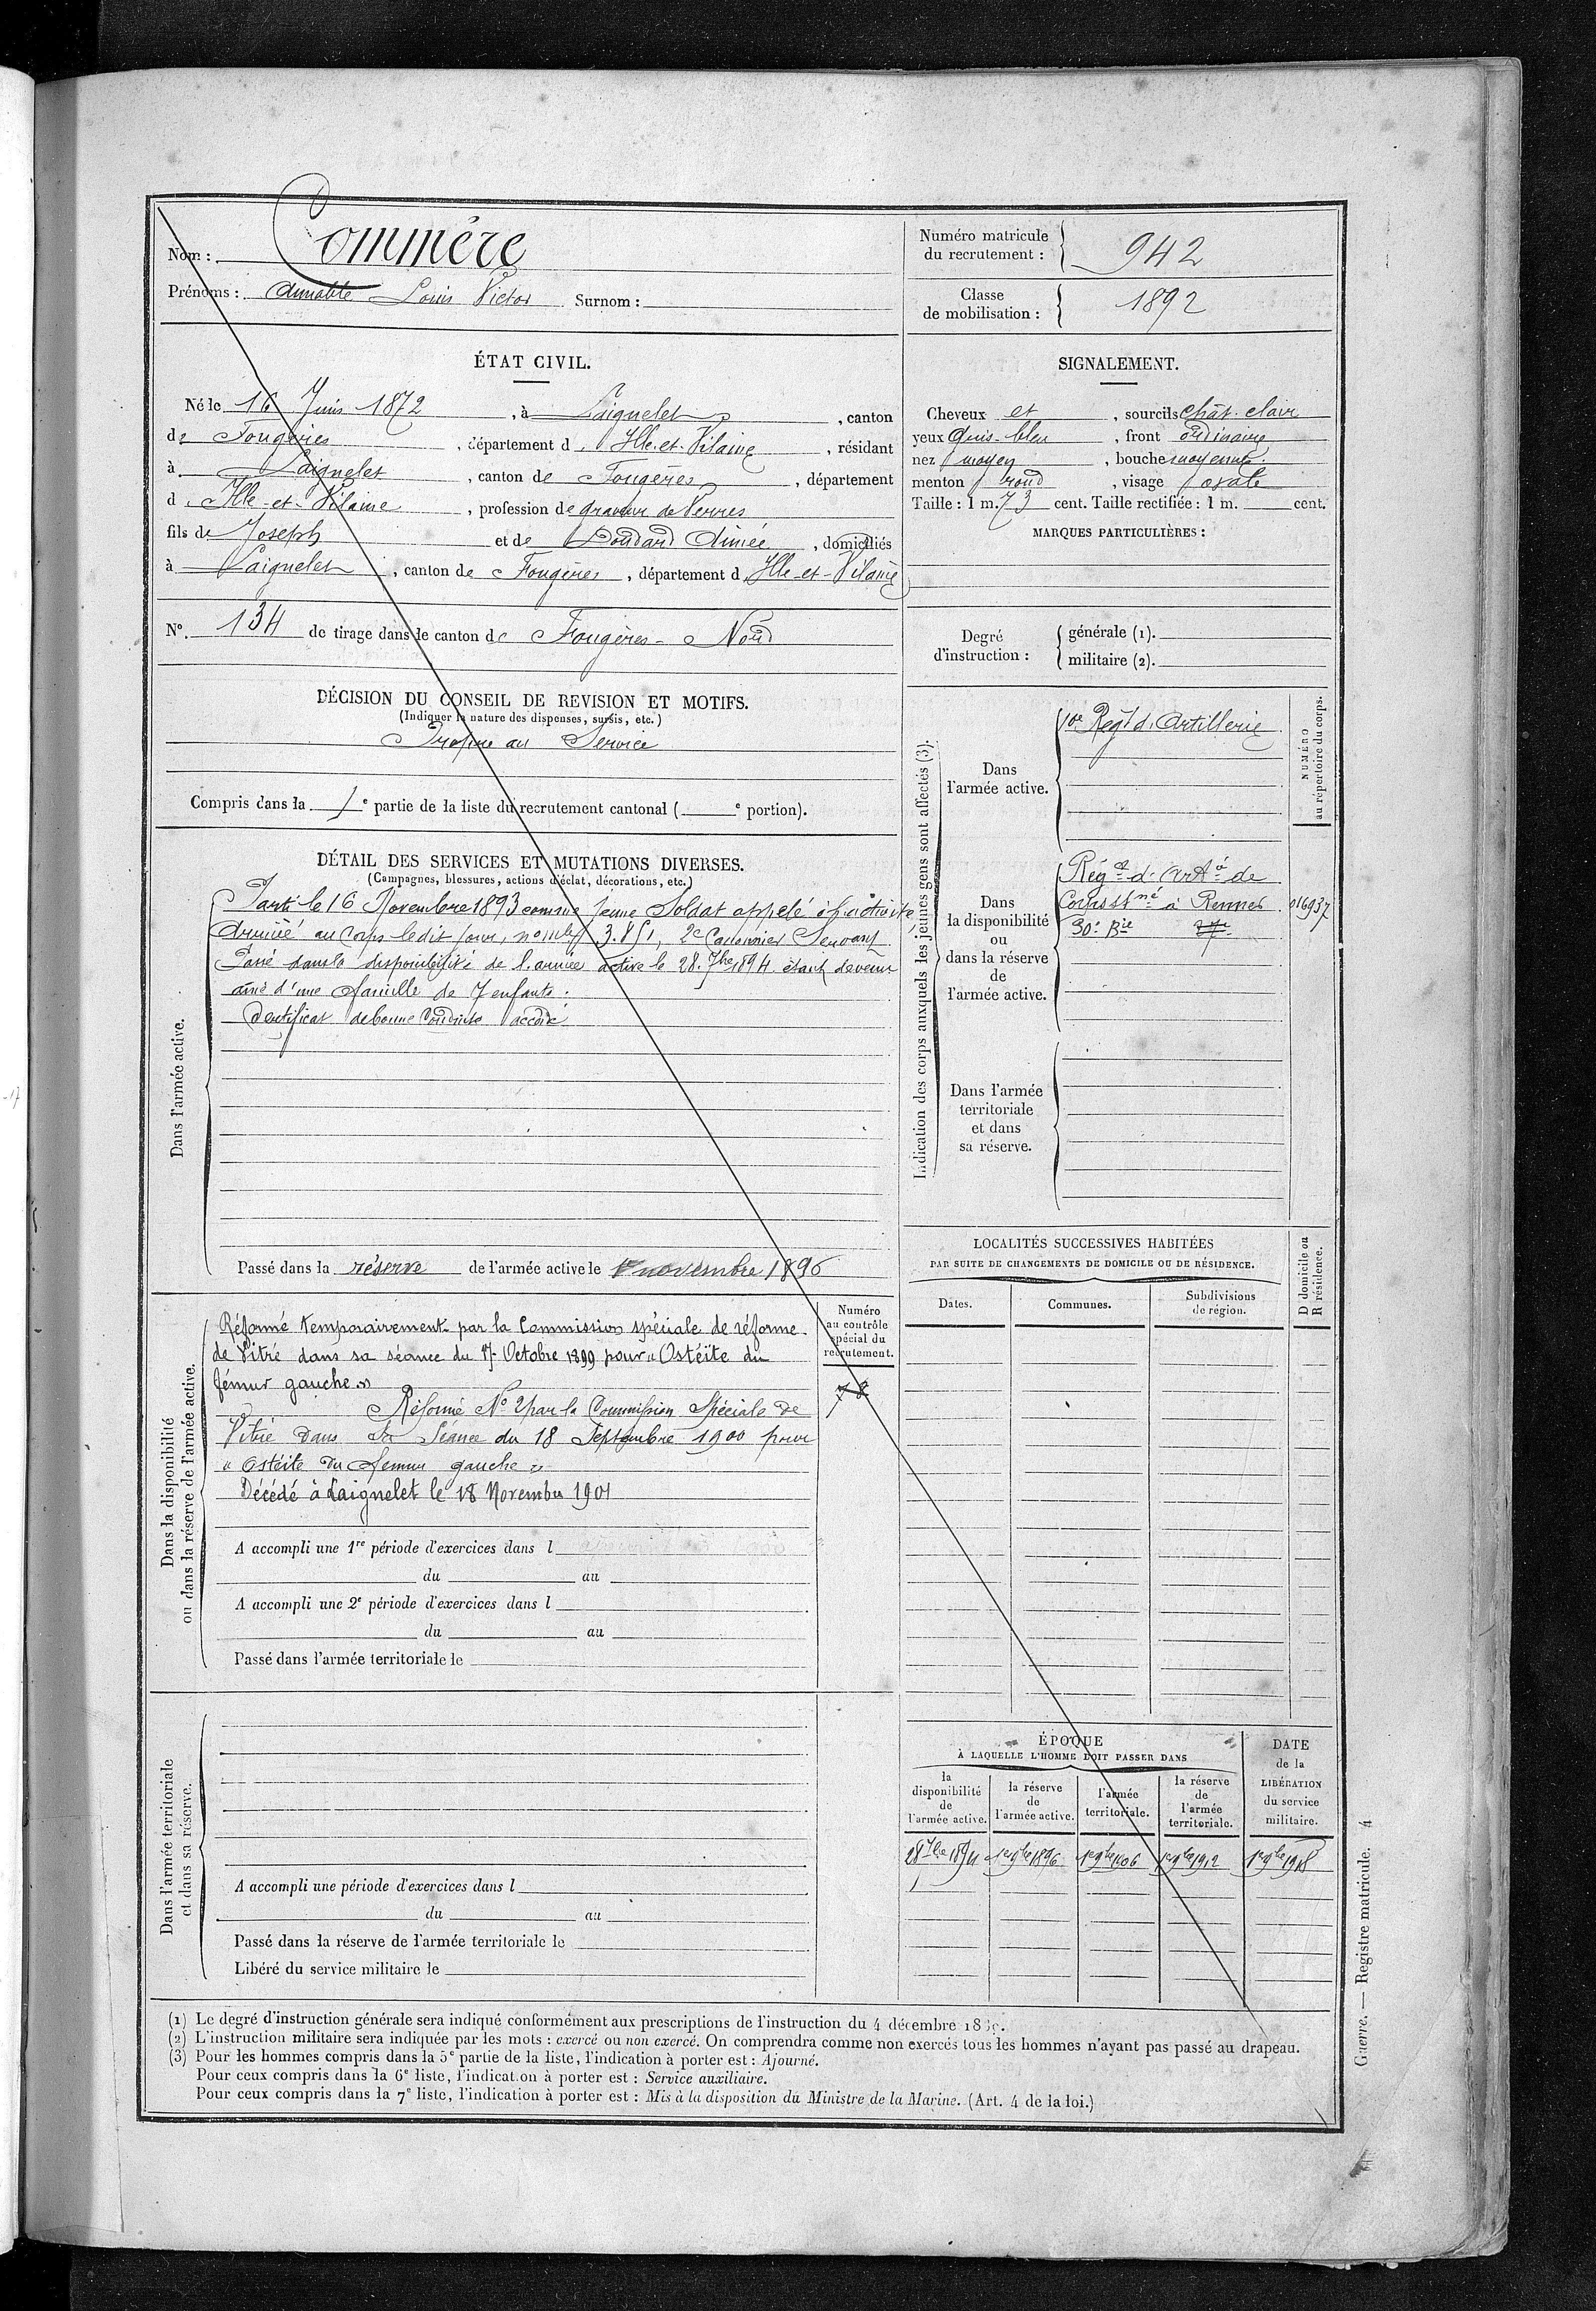 Nom : Commère
Prénoms : Aimable Louis Victor Surnom :
Numéro matricule du recrutement : 942
Classe de mobilisation : 1892
ÉTAT CIVIL.
Né le 16 Juin 1872, à Laignelet, canton
de Fougères, département d'Ille-et-Vilaine, résidant
à Laignelet, canton de Fougères, département
d'Ille-et-Vilaine, profession de graveur de Verres
fils de Joseph et de Doudard Aimée, domiciliés
à Laignelet, canton de Fougères, département d'Ille-et-Vilaine
N° 134 de tirage dans le canton de Fougères-Nord
DÉCISION DU CONSEIL DE REVISION ET MOTIFS.
(Indiquer la nature des dispenses, sursis, etc.)
Propre au Service
Compris dans la 1e partie de la liste du recrutement cantonal ( e portion).
DÉTAIL DES SERVICES ET MUTATIONS DIVERSES.
(Campagnes, blessures, actions d'éclat, décorations, etc.)
Dans l'armée active.
Parti le 16 Novembre 1893 comme jeune Soldat appelé à l'activité,
Arrivé au Corps ledit jour, no mle 3.851, 2e Canonnier Servant
Passé dans la disponibilité de l'armée active le 28 7bre 1894 étant devenu
aîné d'une famille de 7 enfants.
Certificat de bonne Conduite accordé
Passé dans la réserve de l'armée active le 1er novembre 1896
Dans la disponibilité
ou dans la réserve de l'armée active.
Réformé temporairement par la Commission spéciale de réforme
de Vitré dans sa séance du 17 Octobre 1899 pour « Ostéite du
fémur gauche »
Réformé No 2 par la Commission Spéciale de
Vitré dans sa Séance du 18 Septembre 1900 pour
« Ostéite du fémur gauche »
Décédé à Laignelet le 18 Novembre 1901
A accompli une 1re période d'exercices dans l
du au
A accompli une 2e période d'exercices dans l
du au
Passé dans l'armée territoriale le
Numéro
au contrôle
spécial du
recrutement.
78
Dans l'armée territoriale
et dans sa réserve.
A accompli une période d'exercices dans l
du au
Passé dans la réserve de l'armée territoriale le
Libéré du service militaire le
SIGNALEMENT.
Cheveux et, sourcils chât. clair
yeux gris-bleu, front ordinaire
nez moyen, bouche moyenne
menton rond, visage ovale
Taille : 1 m. 73 cent. Taille rectifiée : 1 m. cent.
MARQUES PARTICULIÈRES :
Degré
d'instruction :
générale (1).
militaire (2).
Indication des corps auxquels les jeunes gens sont affectés (3).
NUMÉRO
au répertoire du corps.
Dans
l'armée active.
10e Régt d'Artillerie
Dans
la disponibilité
ou
dans la réserve
de
l'armée active.
Régt d'Artie de
Corps stné à Rennes
016937
30e Bie
Dans l'armée
territoriale
et dans
sa réserve.
LOCALITÉS SUCCESSIVES HABITÉES
PAR SUITE DE CHANGEMENTS DE DOMICILE OU DE RÉSIDENCE.
D domicile ou
R résidence.
Dates.
Communes.
Subdivisions
de région.
ÉPOQUE
À LAQUELLE L'HOMME DOIT PASSER DANS
la
disponibilité
de
l'armée active.
la réserve
de
l'armée active.
l'armée
territoriale.
la réserve
de
l'armée
territoriale.
DATE
de la
LIBÉRATION
du service
militaire.
28 7bre 1894 1er 9bre 1896 1er 9bre 1906 1er 9bre 1912 1er 9bre 1918
(1) Le degré d'instruction générale sera indiqué conformément aux prescriptions de l'instruction du 4 décembre 1889.
(2) L'instruction militaire sera indiquée par les mots : exercé ou non exercé. On comprendra comme non exercés tous les hommes n'ayant pas passé au drapeau.
(3) Pour les hommes compris dans la 5e partie de la liste, l'indication à porter est : Ajourné.
Pour ceux compris dans la 6e liste, l'indication à porter est : Service auxiliaire.
Pour ceux compris dans la 7e liste, l'indication à porter est : Mis à la disposition du Ministre de la Marine. (Art. 4 de la loi.)
Guerre. — Registre matricule. 4